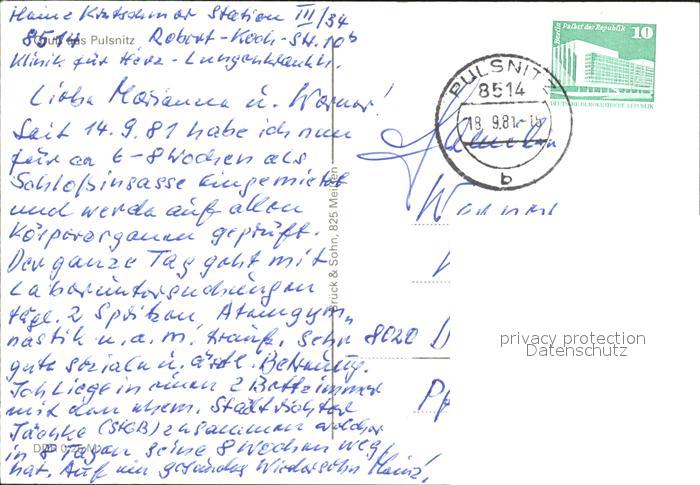 Heinz Kretschmar Station III/34
8514 Pulsnitz Robert-Koch-Str. 10b
Klinik für Herz-Lungenkrankh.
Liebe Marianne u. Werner!
Seit 14.9.81 habe ich nun
für ca 6-8 Wochen als
Schloßinsasse eingemietet
und werde auf allen
Körperorganen geprüft.
Der ganze Tag geht mit
Laboruntersuchungen
tägl. 2 Spritzen, Atemgym-
nastik u.a.m. drauf. Sehr
gute soziale u. ärztl. Betreuung.
Ich liege in einem 2 Bettzimmer
mit dem ehem. Stadtrichter
Jäehke (StGB) zusammen welcher
in 8 Tagen seine 8 Wochen weg
hat. Auf ein gesundes Wiedersehn Heinz!
DDR 0,25 M
Brück & Sohn, 825 Meißen
PULSNITZ
8514
18.9.81-18
b
Berlin Palast der Republik
10
DEUTSCHE DEMOKRATISCHE REPUBLIK
Familie
Werner
8020 D
privacy protection
Datenschutz